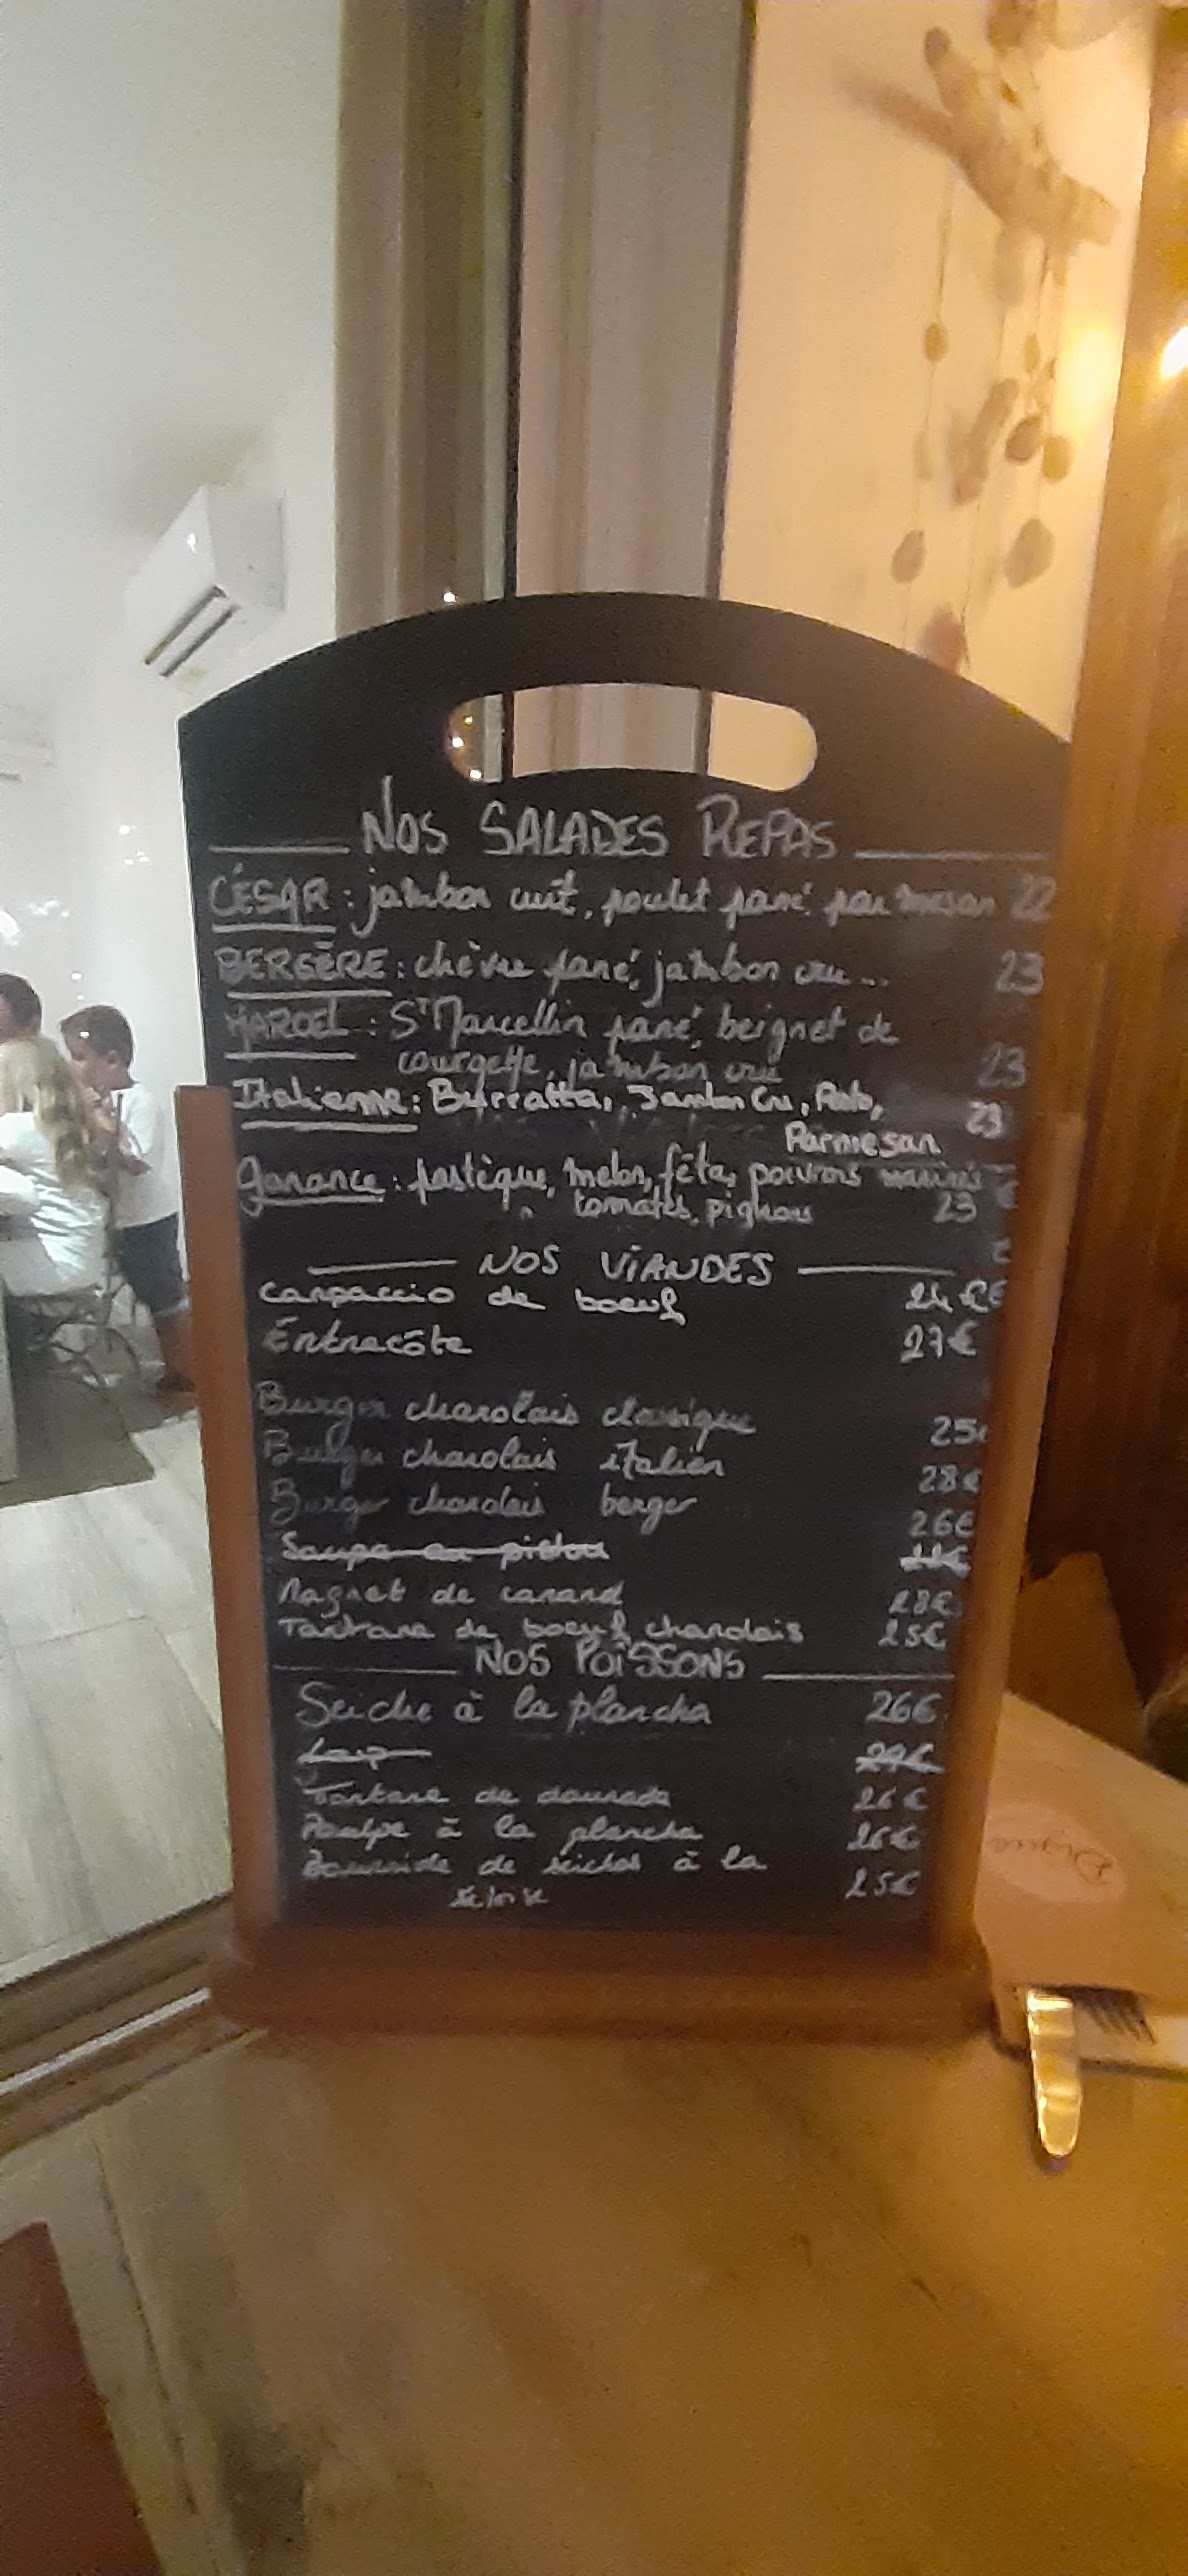 NOS SALADES REPAS
CÉSAR : jambon cuit, poulet pané, parmesan 22
BERGÈRE : chèvre pané, jambon cru... 23
MARCEL : St Marcellin pané, beignet de
courgette, jambon cru 23
Italienne : Burratta, Jambon Cru, 23
Parmesan
Garance : pastèque, melon, féta, poivrons marinés
tomates, pignons 23 €
NOS VIANDES
Carpaccio de boeuf 24 €
Entrecôte 27€
Burger charolais classique 25€
Burger charolais italien 28€
Burger charolais berger 26€
Soupe au pistou
Magret de canard 28€
Tartare de boeuf charolais 25€
NOS POISSONS
Seiche à la plancha 26€
Loup
Tartare de daurade 26€
Poulpe à la plancha 26€
de seiches à la 25€